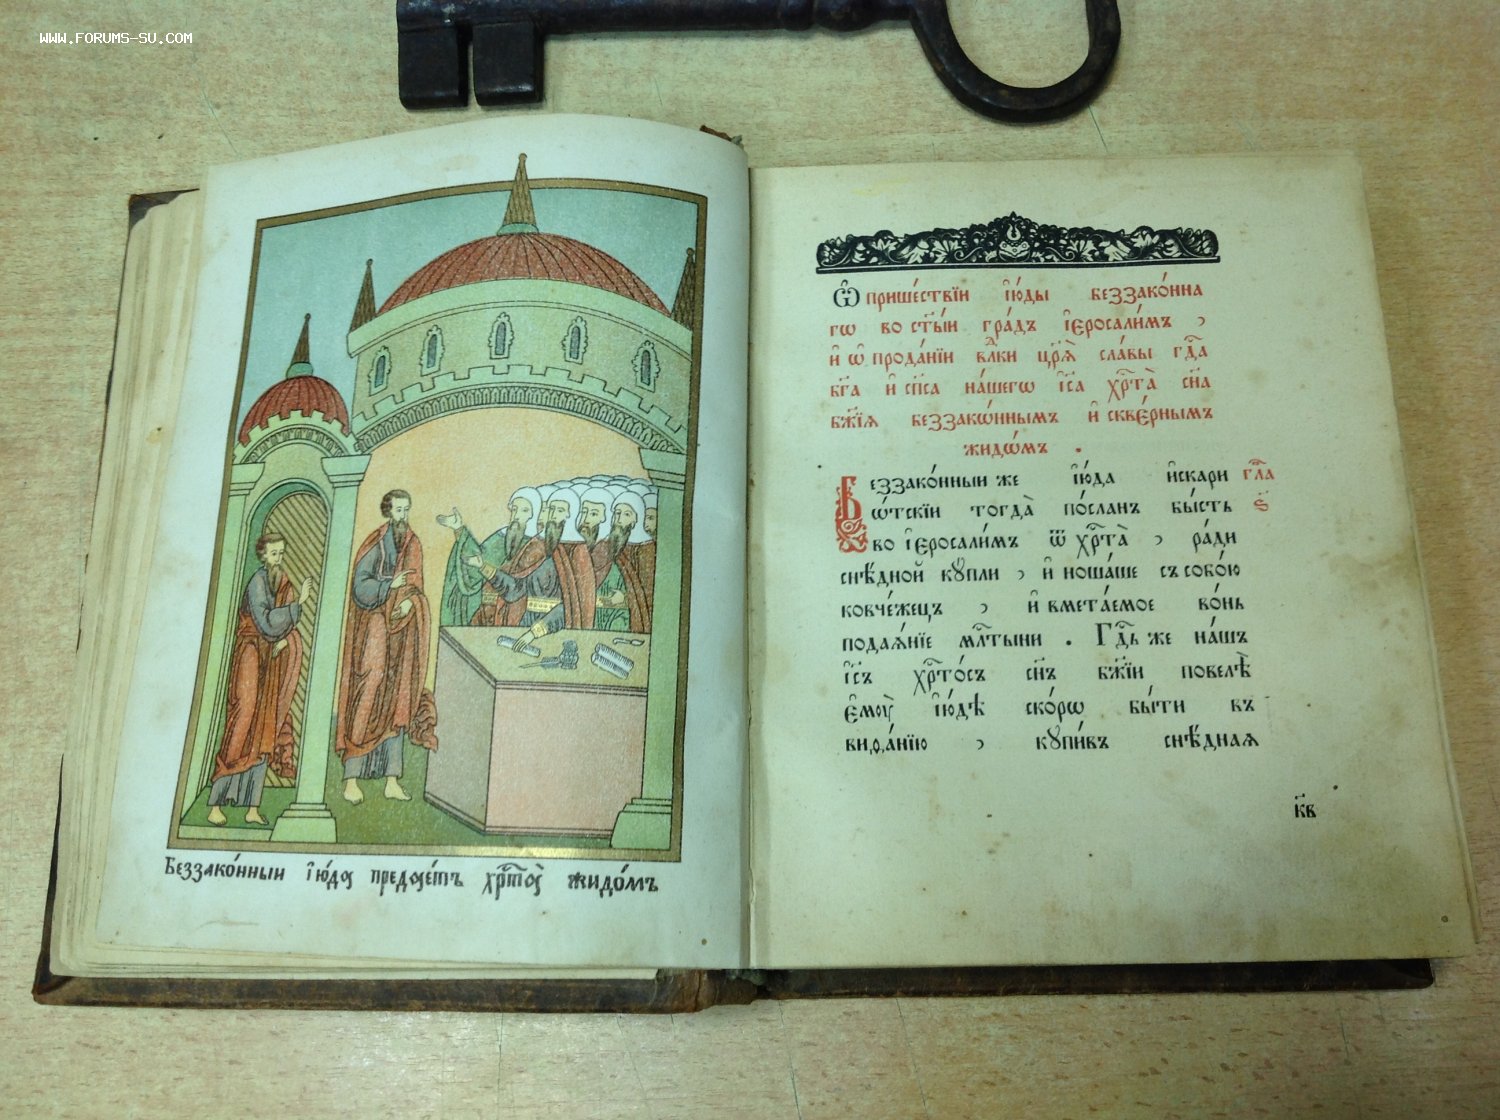 WWW.FORUMS-SU.COM
Беззако́нныи і҆ю́да предае́тъ хрⷭ҇та̀ жидо́мъ
Ѡ҆ прише́ствїи і҆ю́ды беззако́нна
гѡ во ст҃ы́и гра́дъ і҆еросали́мъ ,
и҆ ѡ҆ прода́нїи влⷣки цр҃ѧ̀ сла́вы гдⷭ҇а
бг҃а и҆ сп҃са на́шегѡ і҆с҃а хрⷭ҇та̀ сн҃а
бж҃їѧ беззакѡ́ннымъ и҆ скве́рнымъ
жидѡ́мъ .
Беззако́нныи же і҆ю́да и҆скари
ѡ́тскїи тогда̀ по́сланъ бы́сть
во і҆еросали́мъ ѿ хрⷭ҇та̀ , ра́ди
снѣ́дной кꙋпли , и҆ ноша́ше съ собо́ю
ковче́жецъ , и҆ вмета́емое во́нь
подаѧ́нїе млⷭ҇тыни . Гдⷭ҇ь же на́шъ
і҆с҃ъ хрⷭ҇то́съ сн҃ъ бж҃їи повелѣ̀
є҆моу̀ і҆ю́дѣ ско́рѡ бы́ти въ
виѳа́нїю , кꙋпи́въ снѣ́днаѧ
гла
є҃
к҃в